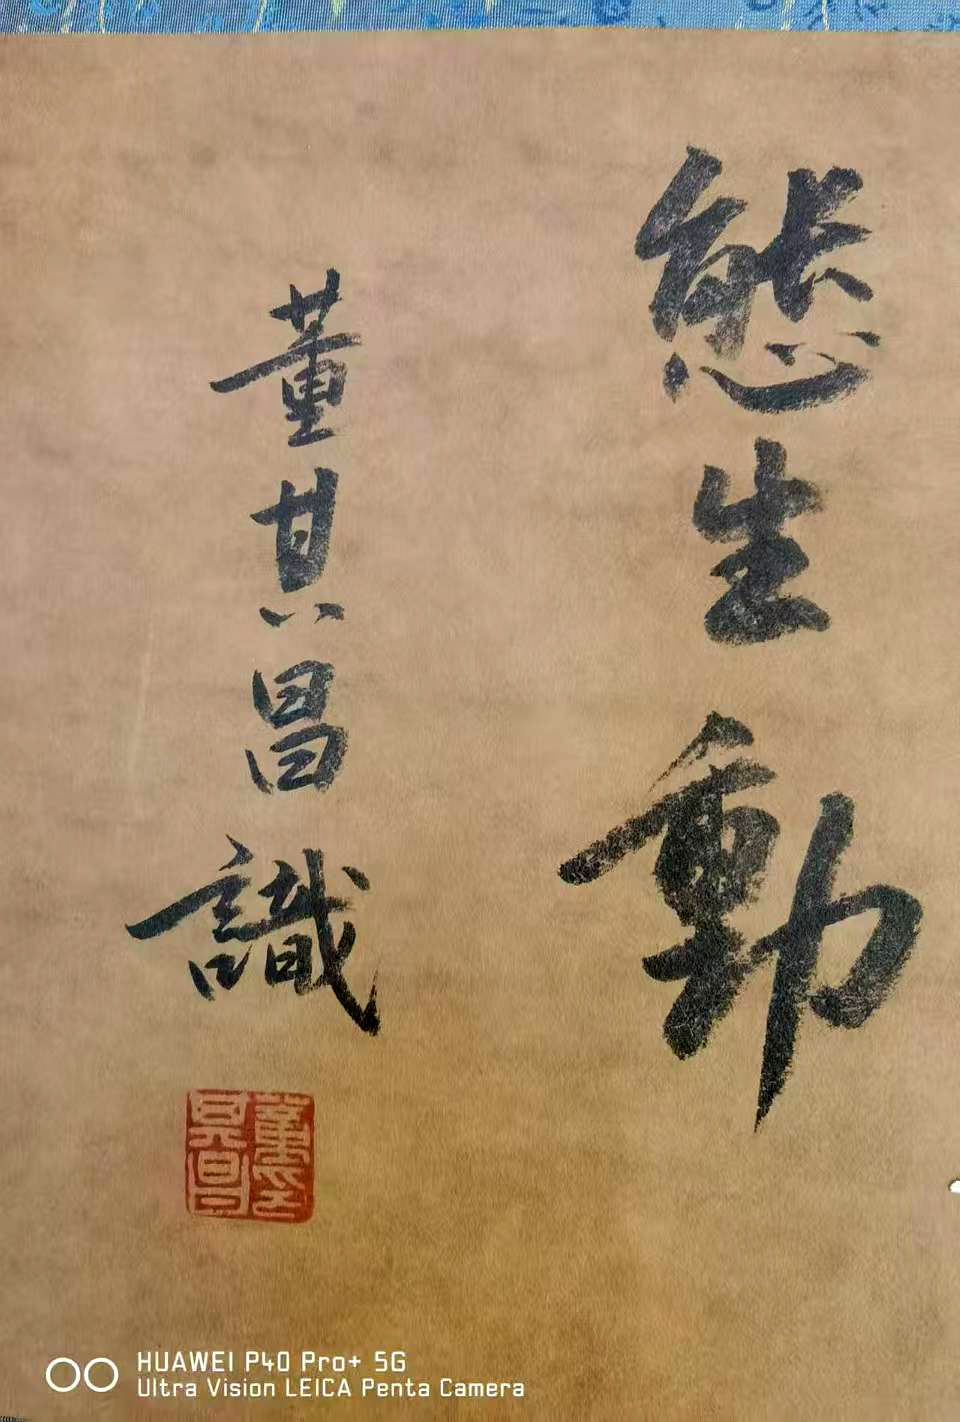 態生動
董其昌識
董其昌印
HUAWEI P40 Pro+ 5G
Ultra Vision LEICA Penta Camera